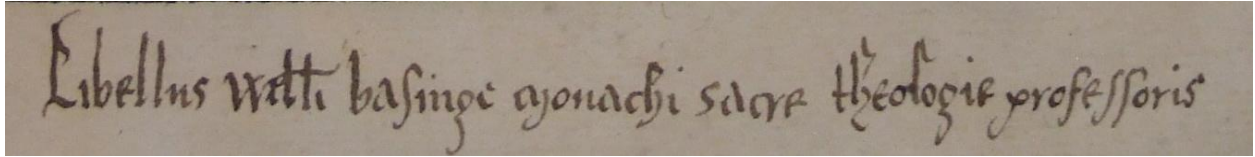 Libellus willi basinge monachi sacre theologie professoris